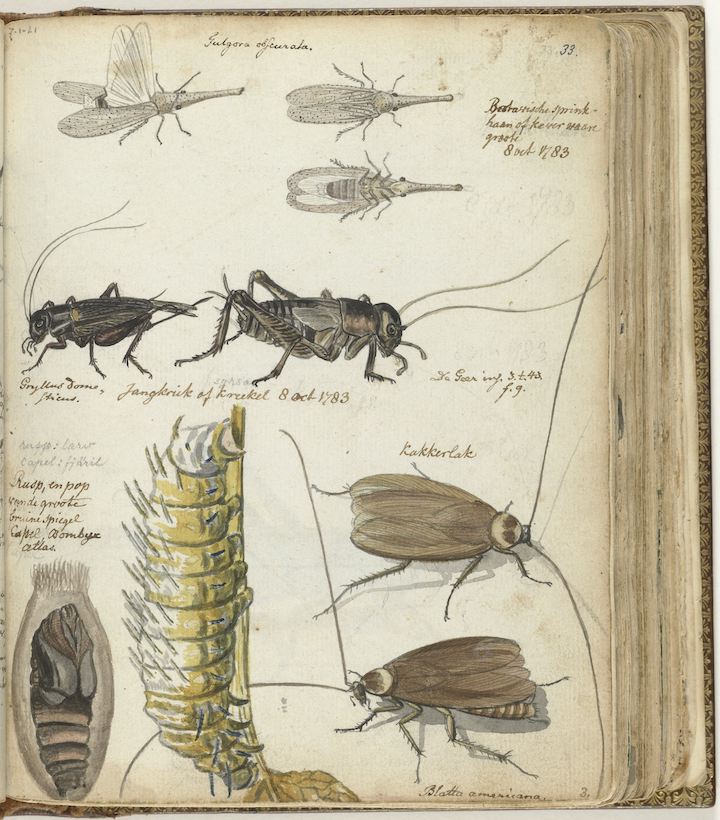 7-1-21
Fulgora obscurata.
33.
Bataviasche sprink-
haan of kever waare
groote
8 oct 1783
Gryllus dome,
sticus.
Jangkrik of krekel 8 oct 1783
De Geer inf. 3. t. 43.
f. 9.
rusp: larv
capel: fjäril
Rusp, en pop
van de groote
bruine spiegel
Capel, Bombyx
atlas.
Kakkerlak
Blatta americana.
3.